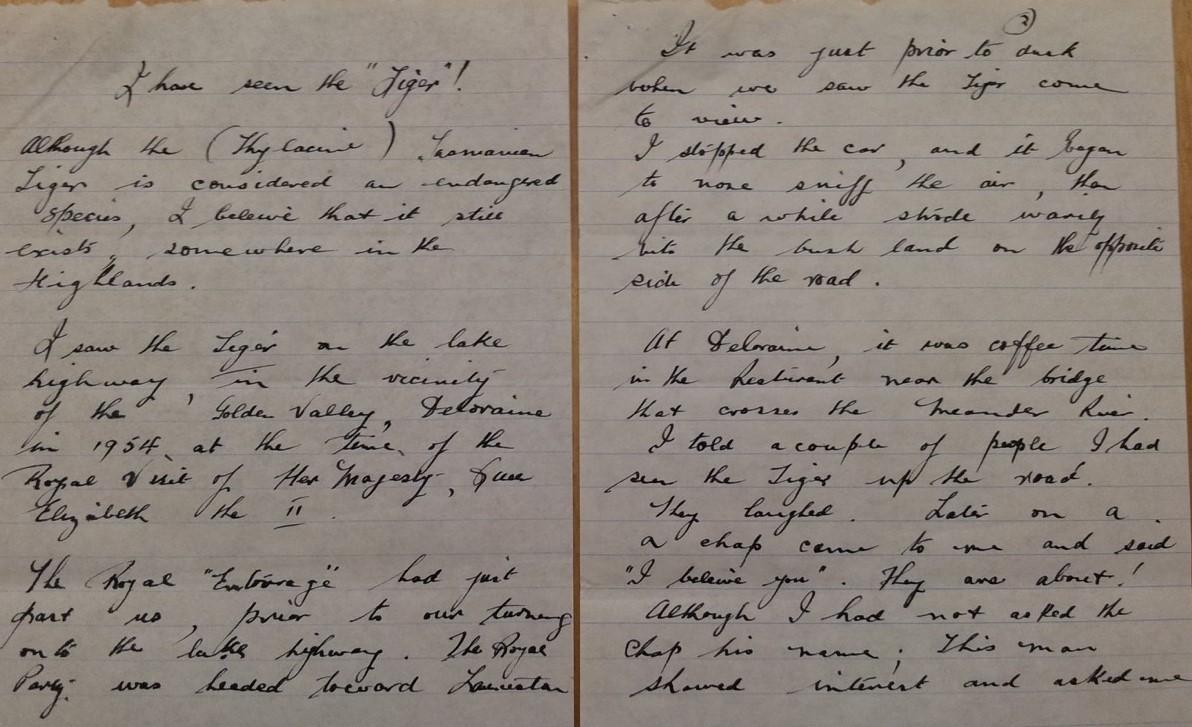 I have seen the "Tiger"!
Although the (Thylacine) Tasmanian
Tiger is considered an endangered
species, I beleive that it still
exists, somewhere in the
Highlands.
I saw the Tiger on the lake
highway, in the vicinity
of the Golden Valley, Deloraine
in 1954, at the time, of the
Royal Visit of Her Magesty, Queen
Elizabeth the II.
The Royal "Entourage" had just
past us, prior to our turning
onto the lake highway. The Royal
Party was headed toward Launcestan
2
It was just prior to dusk
when we saw the Tiger come
to view.
I stopped the car, and it began
to nose sniff the air, then
after a while strode warily
into the bush land on the opposite
side of the road.
At Deloraine, it was coffee time
in the Resturant near the bridge
that crosses the Meander River.
I told a couple of people I had
seen the Tiger up the road.
They laughed. Later on a
a chap came to me and said
"I beleive you". They are about!
Although I had not asked the
chap his name; This man
showed interest and asked me